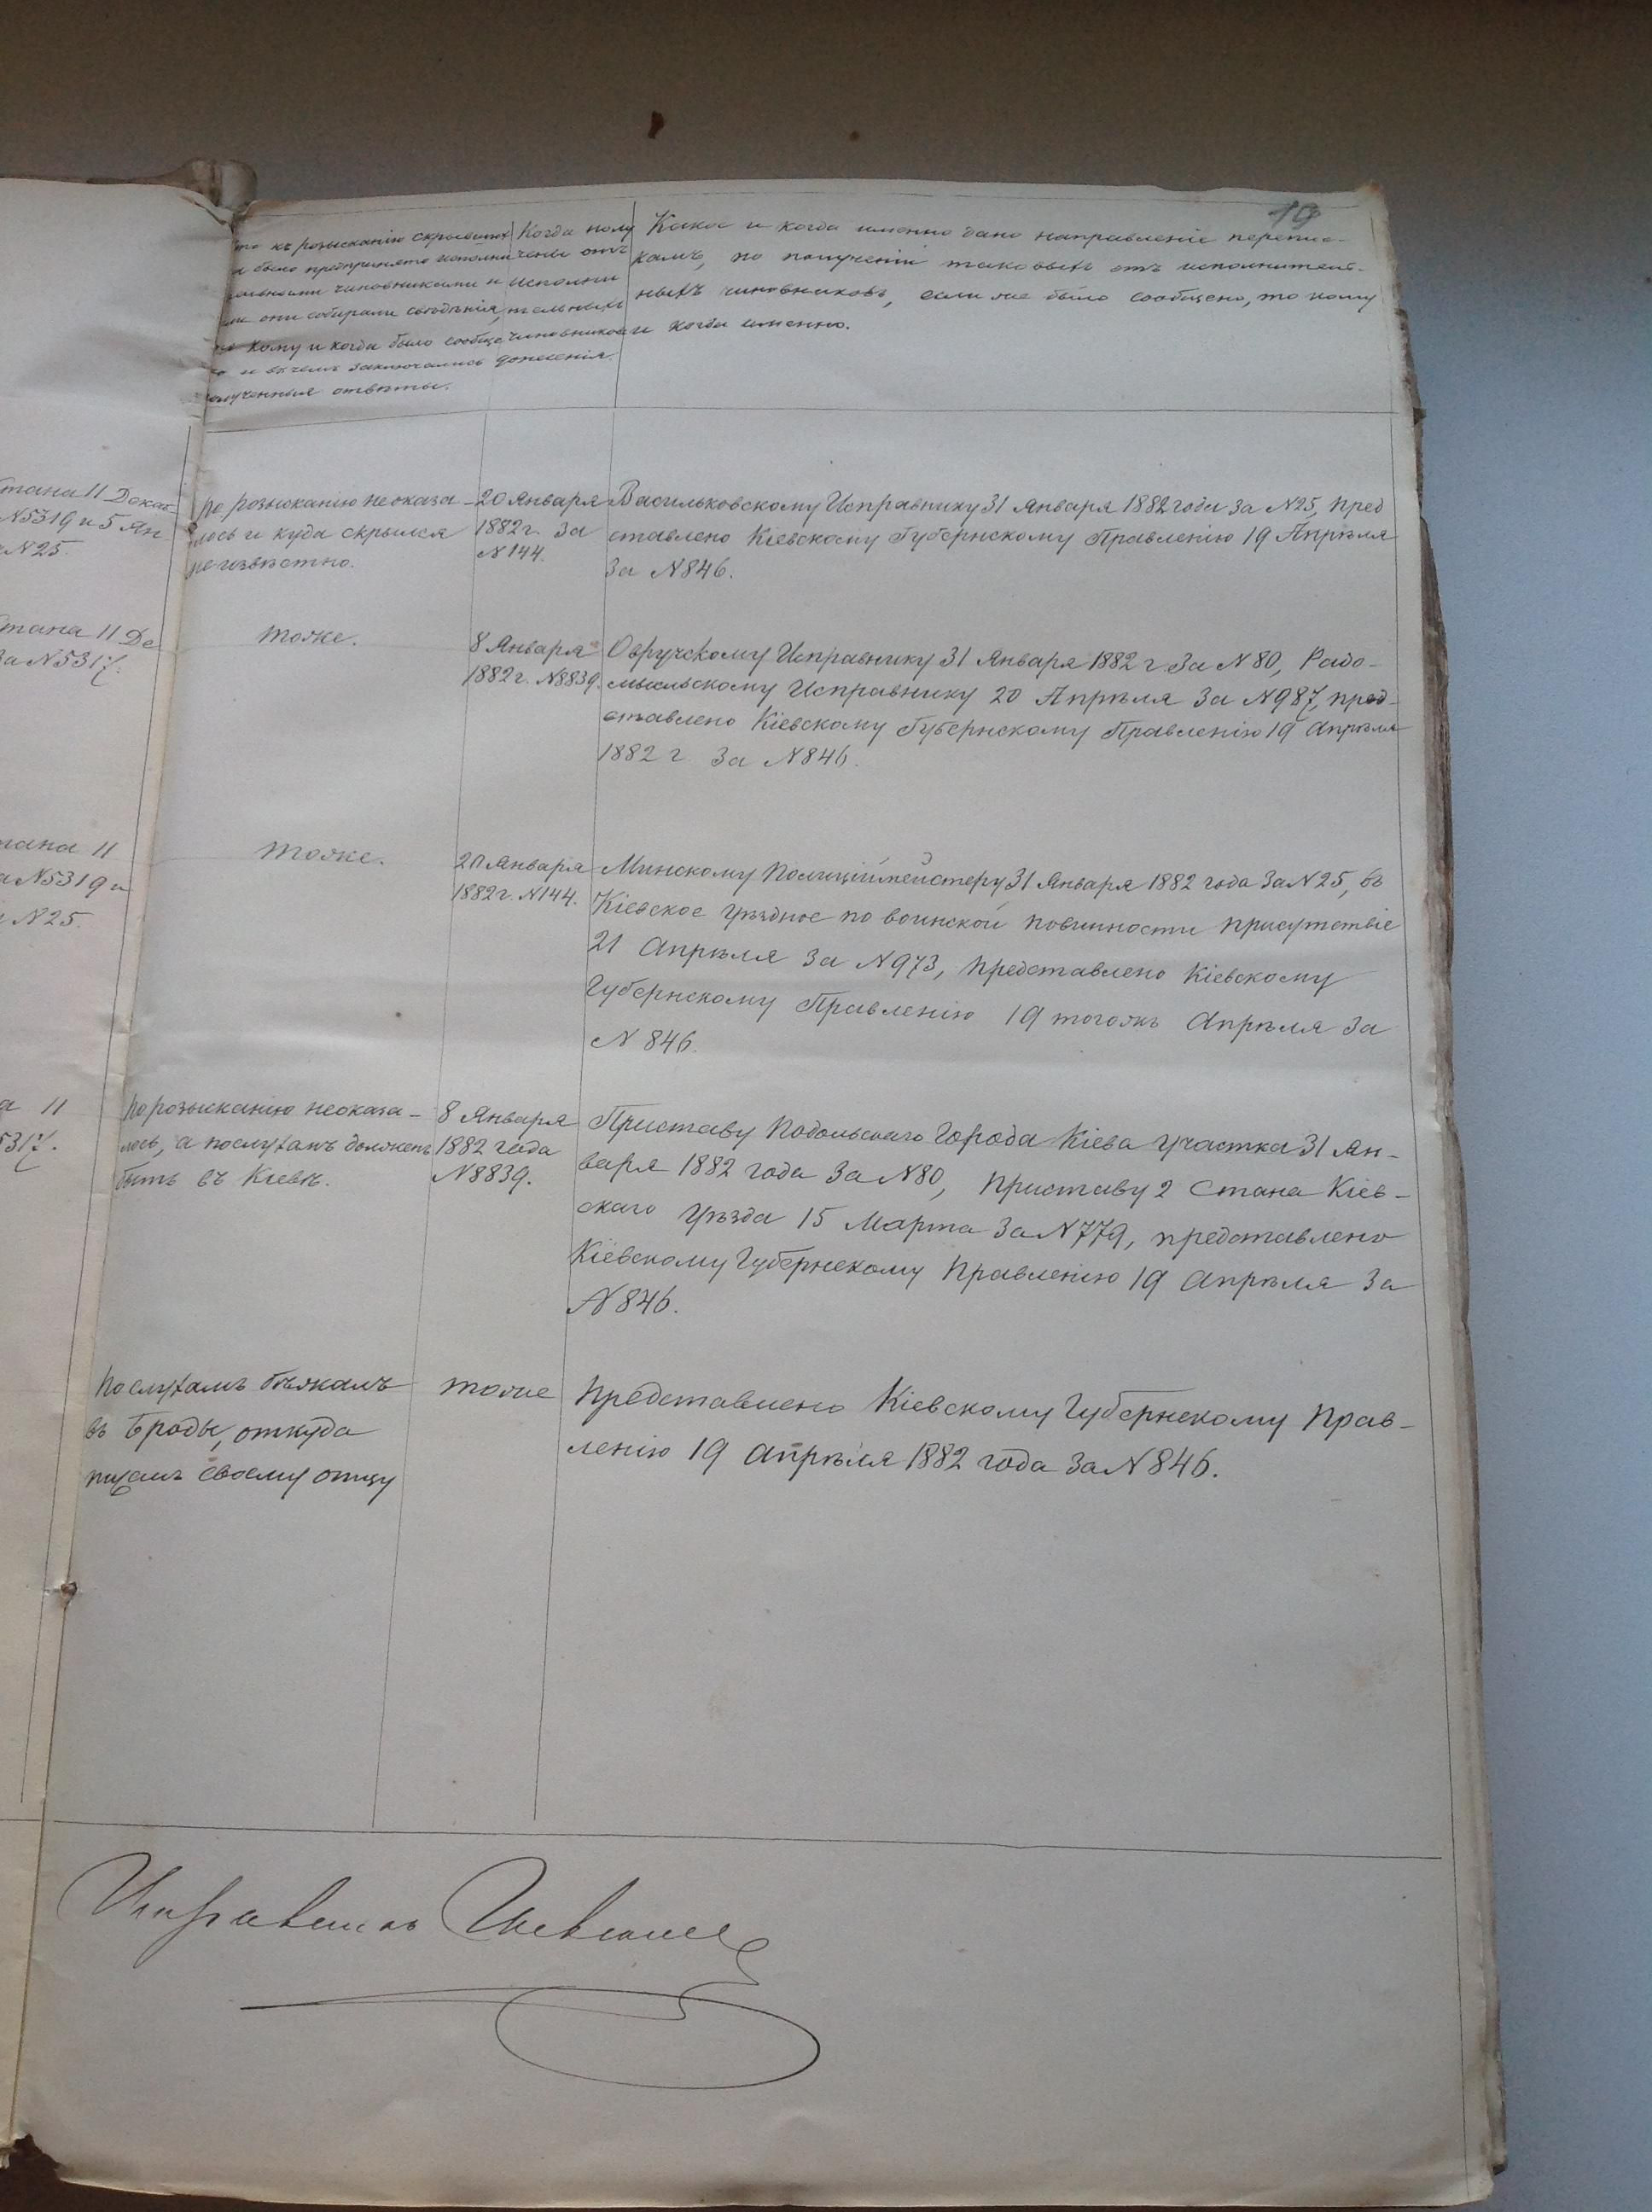 19
то къ розысканію скрывшихся
было предпринято исполни
тельными чиновниками и
они собирали свѣдѣнія,
кому и когда было сообще
но и въ чемъ заключались
полученные отвѣты.
Когда полу
чены отъ
исполни
тельныхъ
чиновниковъ
донесенія.
Какое и когда именно дано направленіе перепис-
камъ, по полученіи таковыхъ отъ исполнитель-
ныхъ чиновниковъ, если же было сообщено, то кому
и когда именно.
Стана 11 Декаб
№5319 и 5 Ян
№25.
По розысканію неоказа-
лось и куда скрылся
неизвѣстно.
20 Января
1882 г. За
№144.
Васильковскому Исправнику 31 Января 1882 года За №25, пред
ставлено Кіевскому Губернскому Правленію 19 Апрѣля
За №846.
Стана 11 Де
За №5317.
Тоже.
8 Января
1882 г. №8839.
Овручскому Исправнику 31 Января 1882 г. За №80, Радо-
мысльскому Исправнику 20 Апрѣля За №987, пред-
ставлено Кіевскому Губернскому Правленію 19 Апрѣля
1882 г За №846.
тана 11
№5319 и
№25.
Тоже.
20 Января
1882 г. №144.
Минскому Полиціймейстеру 31 Января 1882 года За №25, въ
Кіевское уѣздное по воинской повинности присутствіе
21 Апрѣля За №973, представлено Кіевскому
Губернскому Правленію 19 тогожъ Апрѣля За
№846.
а 11
5317.
По розысканію неоказа-
лось, а послухамъ долженъ
быть въ Кіевѣ.
8 Января
1882 года
№8839.
Приставу Подольскаго Города Кіева участка 31 Ян-
варя 1882 года За №80, Приставу 2 Стана Кіев-
скаго уѣзда 15 Марта За №779, представлено
Кіевскому Губернскому Правленію 19 Апрѣля За
№846.
Послухамъ бѣжалъ
въ Броды, откуда
писалъ своему отцу
тоже
Представлено Кіевскому Губернскому Прав-
ленію 19 Апрѣля 1882 года За №846.
Исправникъ